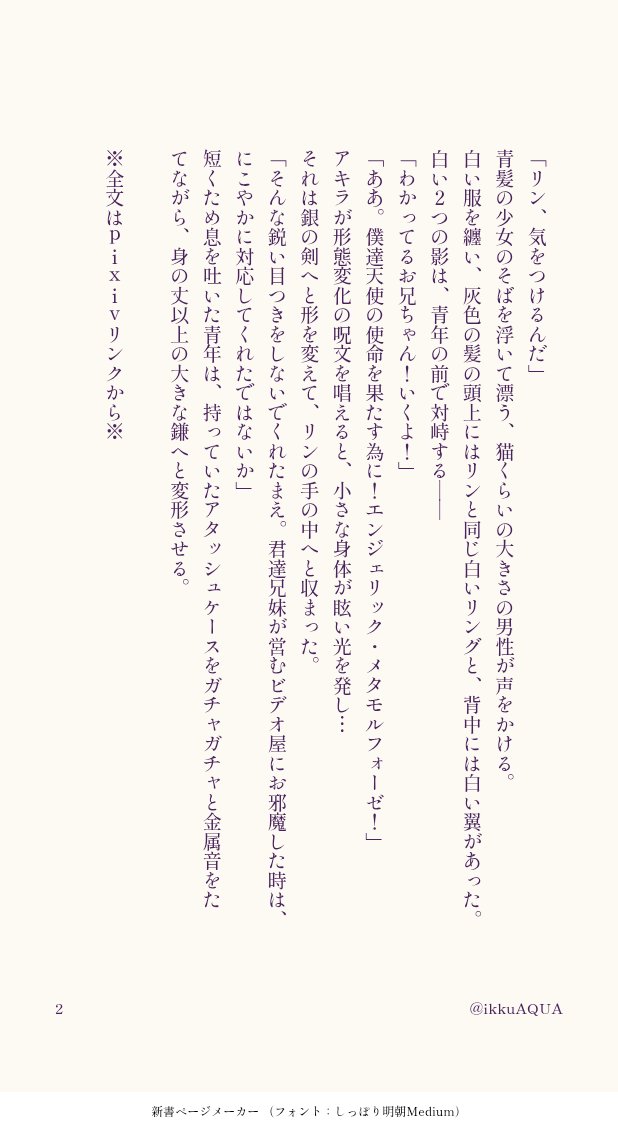 「リン、気をつけるんだ」
青髪の少女のそばを浮いて漂う、猫くらいの大きさの男性が声をかける。
白い服を纏い、灰色の髪の頭上にはリンと同じ白いリングと、背中には白い翼があった。
白い２つの影は、青年の前で対峙する――
「わかってるお兄ちゃん！いくよ！」
「ああ。僕達天使の使命を果たす為に！エンジェリック・メタモルフォーゼ！」
アキラが形態変化の呪文を唱えると、小さな身体が眩い光を発し…
それは銀の剣へと形を変えて、リンの手の中へと収まった。
「そんな鋭い目つきをしないでくれたまえ。君達兄妹が営むビデオ屋にお邪魔した時は、
にこやかに対応してくれたではないか」
短くため息を吐いた青年は、持っていたアタッシュケースをガチャガチャと金属音をた
てながら、身の丈以上の大きな鎌へと変形させる。
※全文はｐｉｘｉｖリンクから※
2
@ikkuAQUA
新書ページメーカー （フォント：しっぽり明朝Medium）